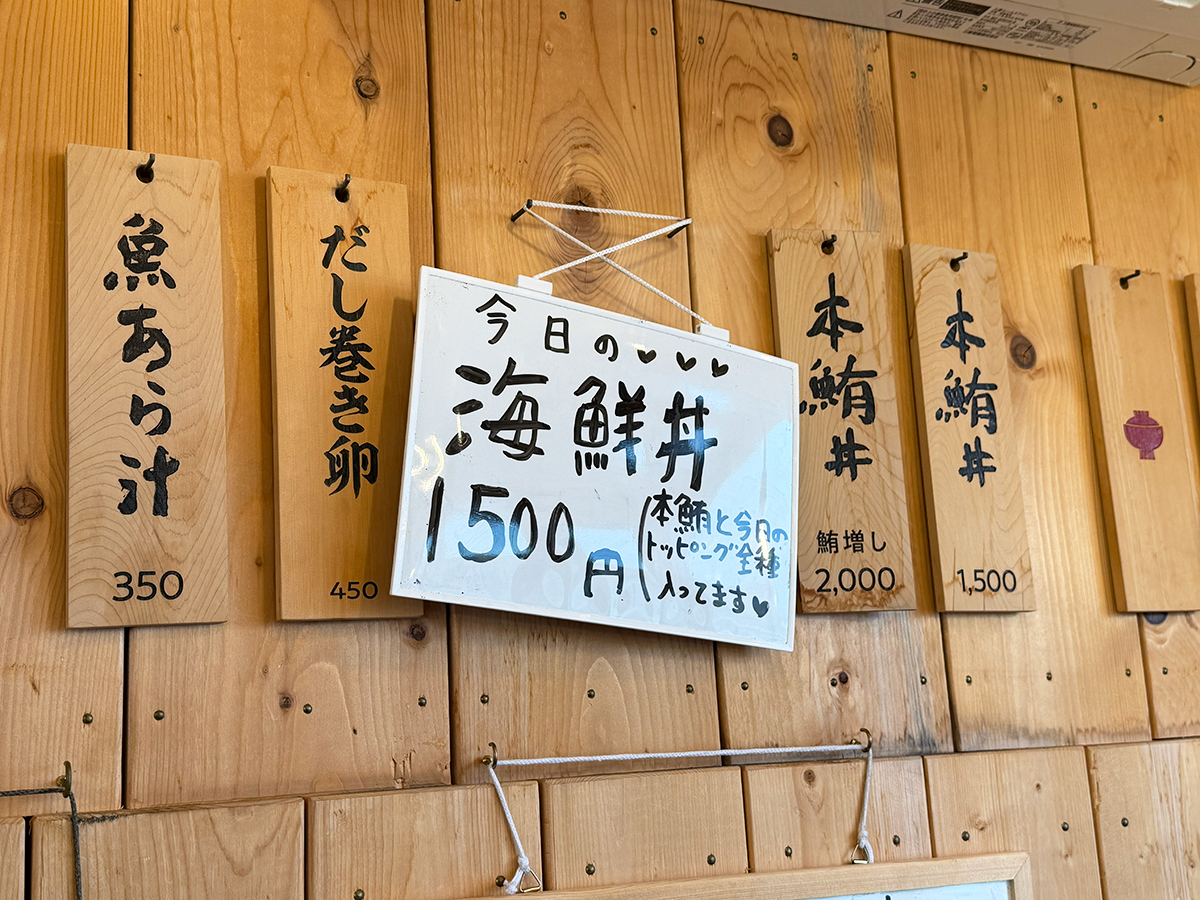 本鮪丼
1,500
本鮪丼
鮪増し
2,000
今日の♥♥♥
海鮮丼
1500円
(本鮪と今日の
トッピング全種
入ってます♥
だし巻き卵
450
魚あら汁
350